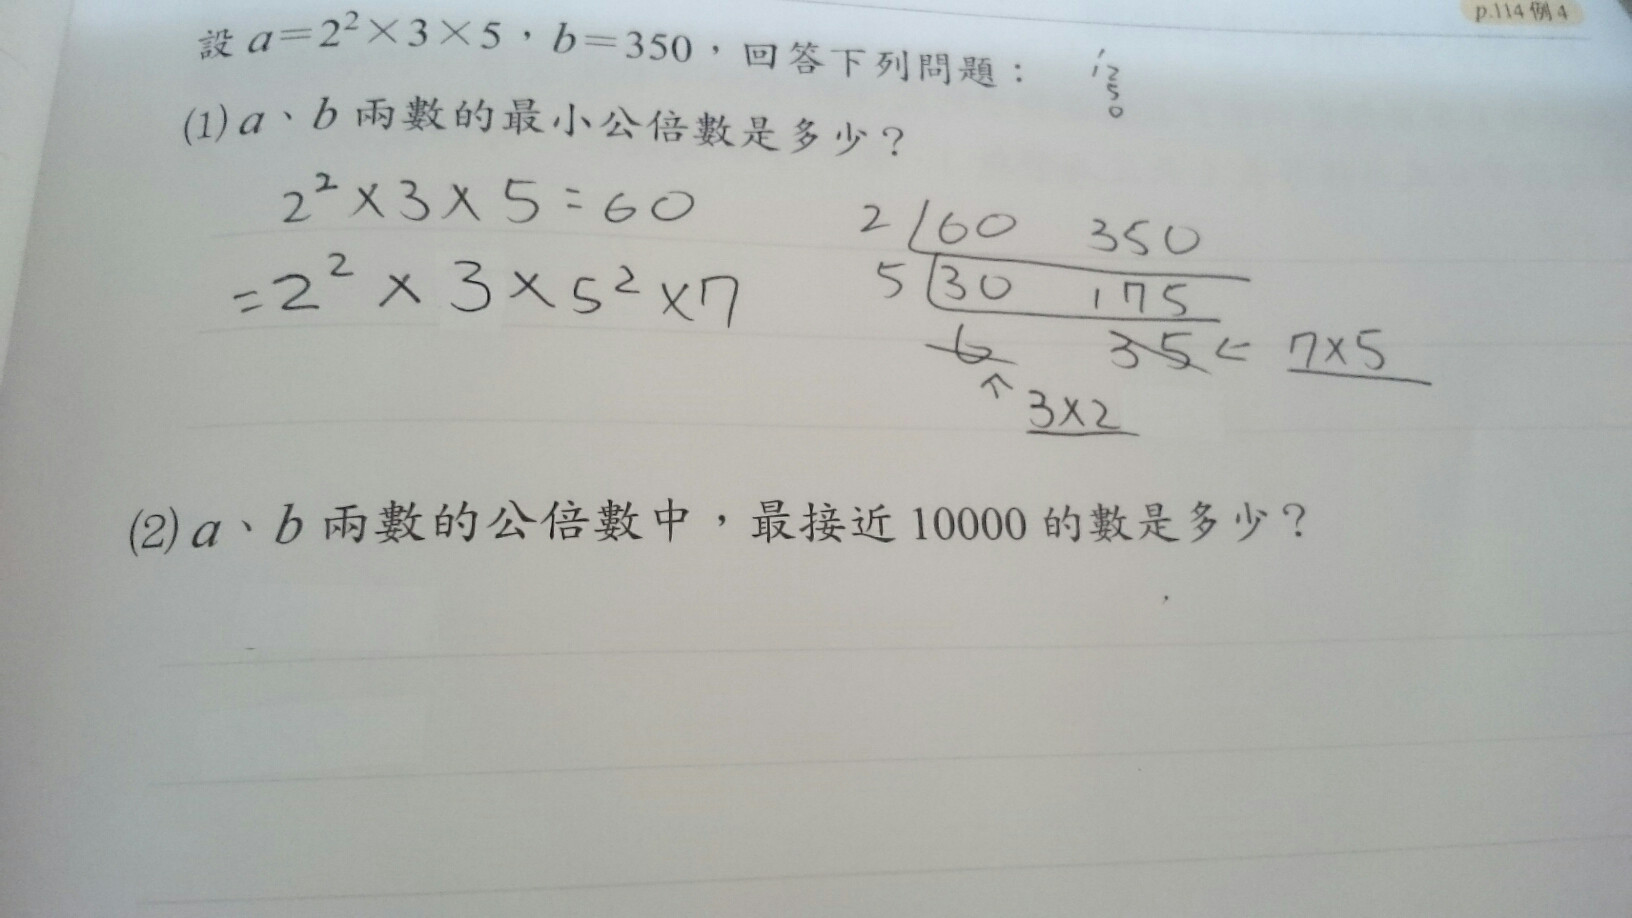 p.114 例 4
設 a=2²×3×5，b=350，回答下列問題：
(1) a、b 兩數的最小公倍數是多少？
2² × 3 × 5 = 60
= 2² × 3 × 5² × 7
2 60 350
5 30 175
6 35 ← 7×5
↑
3×2
(2) a、b 兩數的公倍數中，最接近 10000 的數是多少？